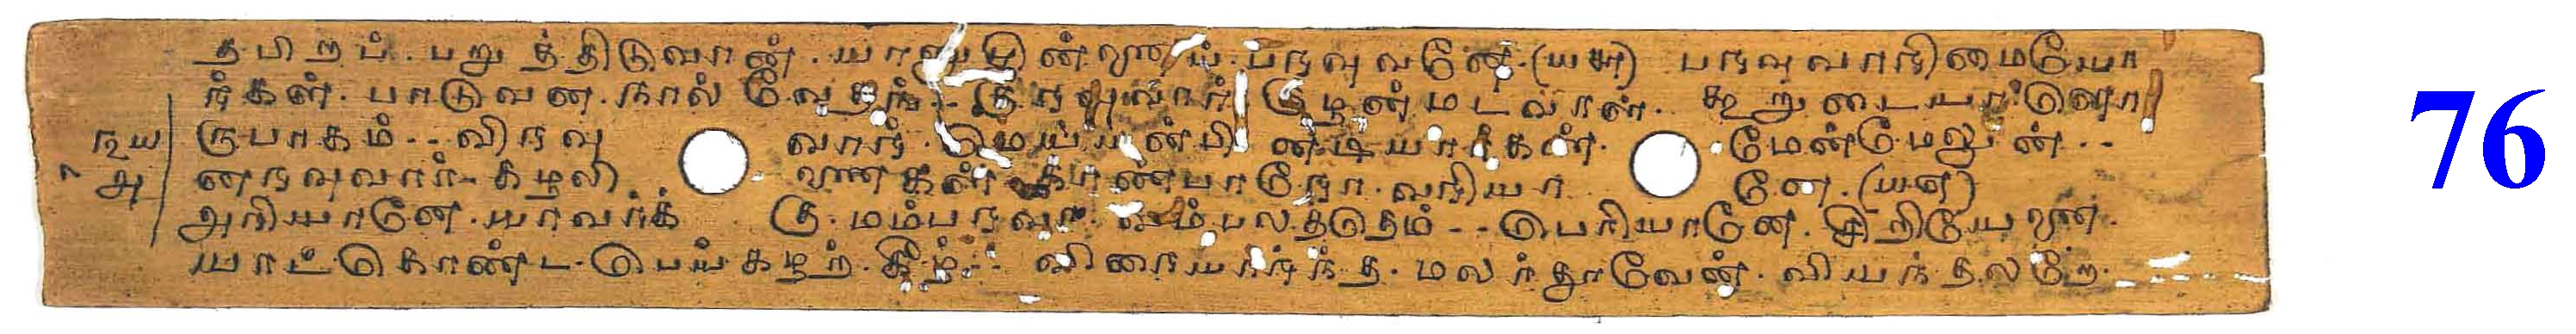 தபிறப். பறுத்திடுவான். பரவுவனே. (யரு) பரவுவாரிமையோ
ர்கள். பாடுவன. நால் வேதங். குரவுவார் குழன்மடவாள். கூறுடையாளொ
நய ருபாகம்-- விரவு வார். மெய்யன்பி னடியார்கள். மேன்மேலுன்--
அ னரவுவார்-கழலி ணைகள் காண்பாரோ. வரியா னே. (யள)
அரியானே. யாவர்க் கு. மம்பரவா. வம்பலத்தெம்-- பெரியானே. சிறியேனை.
யாட்கொண்ட. பெய்கழற். கீழ்-- விரையார்ந்த. மலர்தூவேன். வியந்தலறே.
76